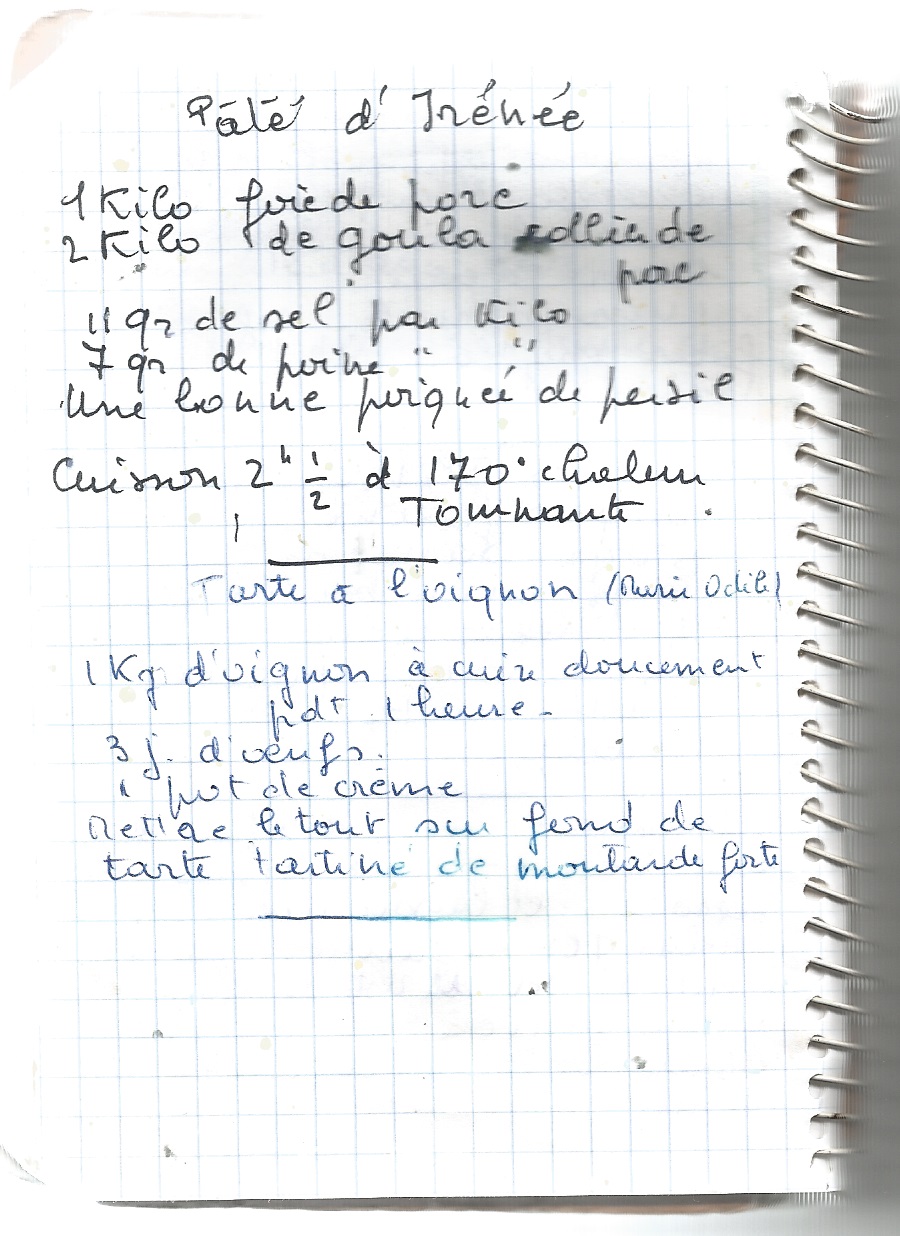 Pâté d'Irénée
1 Kilo foie de porc
2 Kilo de goula ollier de
porc
11 gr de sel par Kilo
7 gr de poivre " "
Une bonne poignée de persil
Cuisson 2h 1/2 à 170° chaleur
Tournante.
Tarte à l'oignon (Marie Odile)
1 Kg d'oignon à cuire doucement
pdt 1 heure -
3 j. d'oeufs.
1 pot de crème
Mettre le tout sur fond de
tarte tartiné de moutarde forte